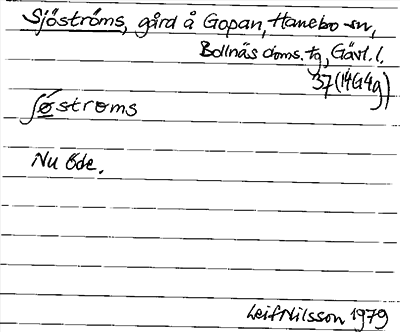 Sjöströms, gård å Gopan, Hanebo sn,
Bollnäs doms. tg, Gävl. l.
37 (14G4g)
ʃøstrøms
Nu öde.
Leif Nilsson 1979